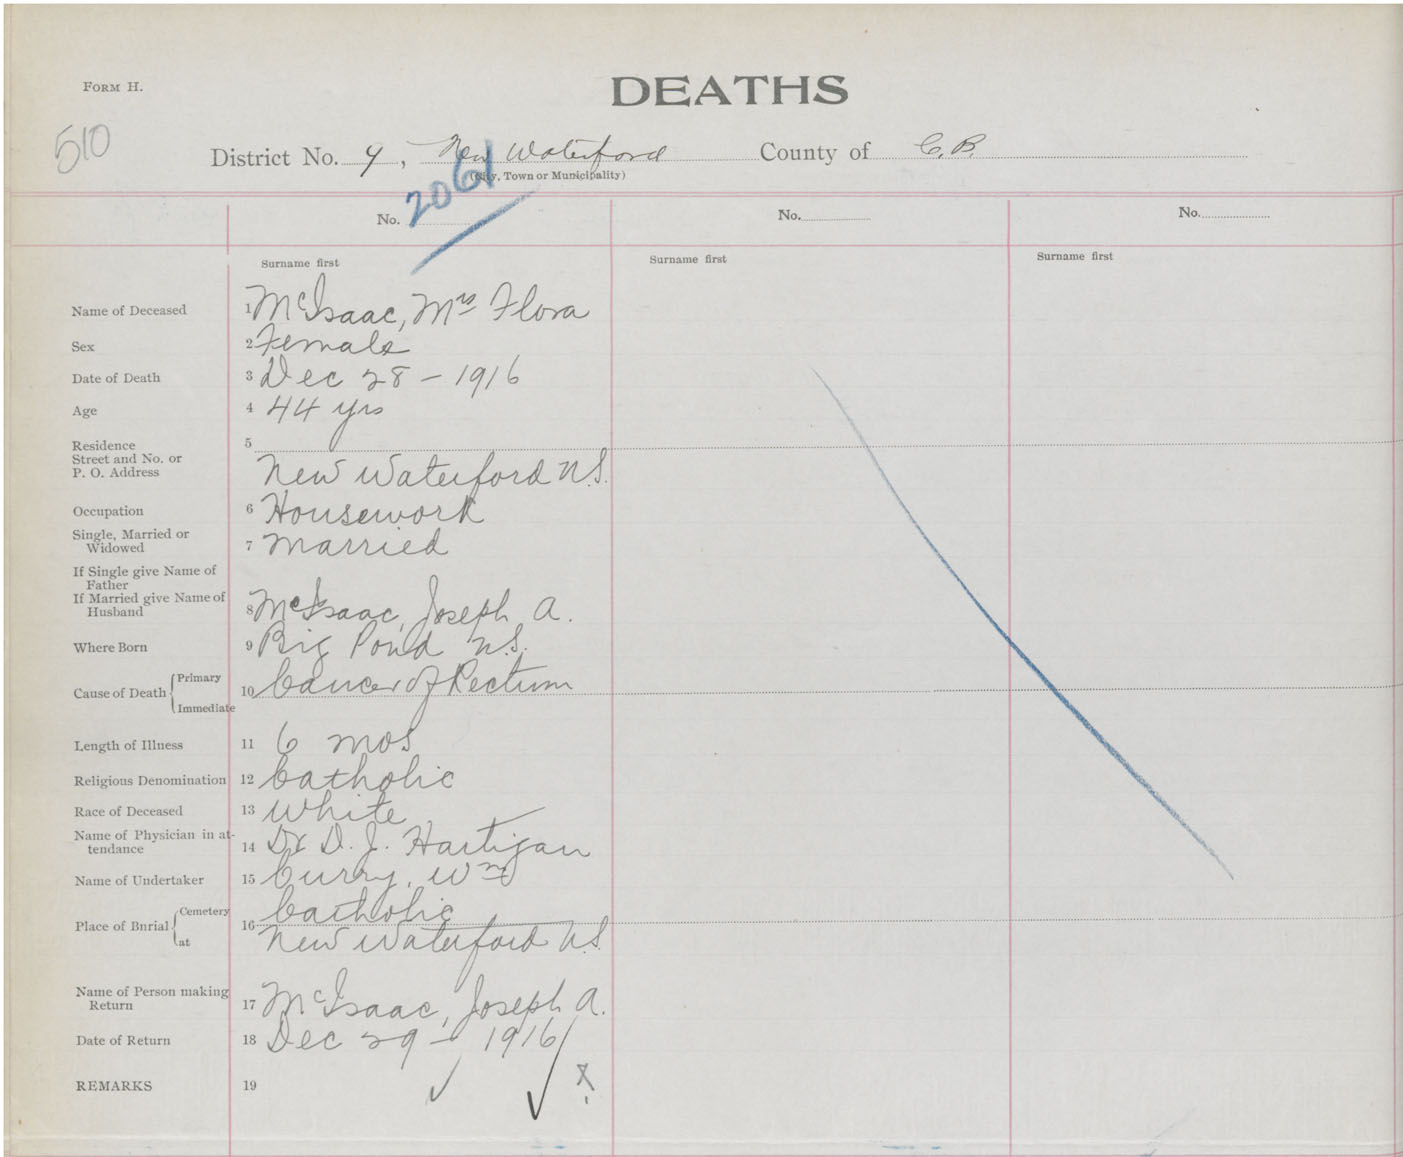 FORM H.
DEATHS
510
District No. 9, New Waterford County of C.B.
(City, Town or Municipality)
No. 2061 No. No.
Surname first Surname first Surname first
Name of Deceased 1 McIsaac, Mrs Flora
Sex 2 Female
Date of Death 3 Dec 28 - 1916
Age 4 44 yrs
Residence 5
Street and No. or
P. O. Address New Waterford N.S.
Occupation 6 Housework
Single, Married or
Widowed 7 Married
If Single give Name of
Father
If Married give Name of
Husband 8 McIsaac, Joseph A.
Where Born 9 Big Pond N.S.
Cause of Death Primary
10 Cancer of Rectum
Immediate
Length of Illness 11 6 mos
Religious Denomination 12 Catholic
Race of Deceased 13 White
Name of Physician in at-
tendance 14 Dr D. J. Hartigan
Name of Undertaker 15 Curry, Wm
Place of Bnrial Cemetery 16 Catholic
at New Waterford N.S.
Name of Person making
Return 17 McIsaac, Joseph A.
Date of Return 18 Dec 29 - 1916
REMARKS 19